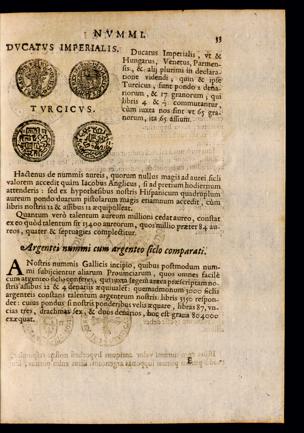 NVMMI. 33
DVCATVS IMPERIALIS.
TVRCICVS.
Ducatus Imperialis, vt &
Hungarus, Venetus, Parmen-
sis, & alij plurimi in declara-
tione videndi, quin & ipse
Turcicus, sunt pondo 2 dena-
riorum, & 17 granorum, qui
libris 4 & ½ commutantur,
cùm iuxta nos sint vt 65 gra-
norum, ita 65 assium.
Hactenus de nummis aureis, quorum nullus magis ad aurei sicli
valorem accedit quàm Iacobus Anglicus, si ad pretium hodiernum
attenderis: sed ex hypothesibus nostris Hispanicum quadruplum
aureum pondo duarum pistolarum magis enamnum accedit, cùm
libris nostris 21 & assibus 12 æquipolleat.
Quantum verò talentum aureum millioni cedat aureo, constat
ex eo quòd talentum sit 15400 aureorum, quos millio præter 84 au-
reos, quater & septuagies complectitur.
Argentei nummi cum argenteo siclo comparati.
A Nostris nummis Gallicis incipio, quibus postmodum num-
mi subijcientur aliarum Prouinciarum, quos omnes facilè
cum argenteo siclo conferes, qui iuxta
assibus 12 & 4 denariis æquiualet: quemadmodum 3000 siclis
argenteis constans talentum argenteum nostris libris 1550 respon-
det: cuius pondus si nostris ponderibus velis æquare, libras 87, vn-
cias tres, drachmas sex, & duos denarios, hoc est graua 804000
exæquat.
E